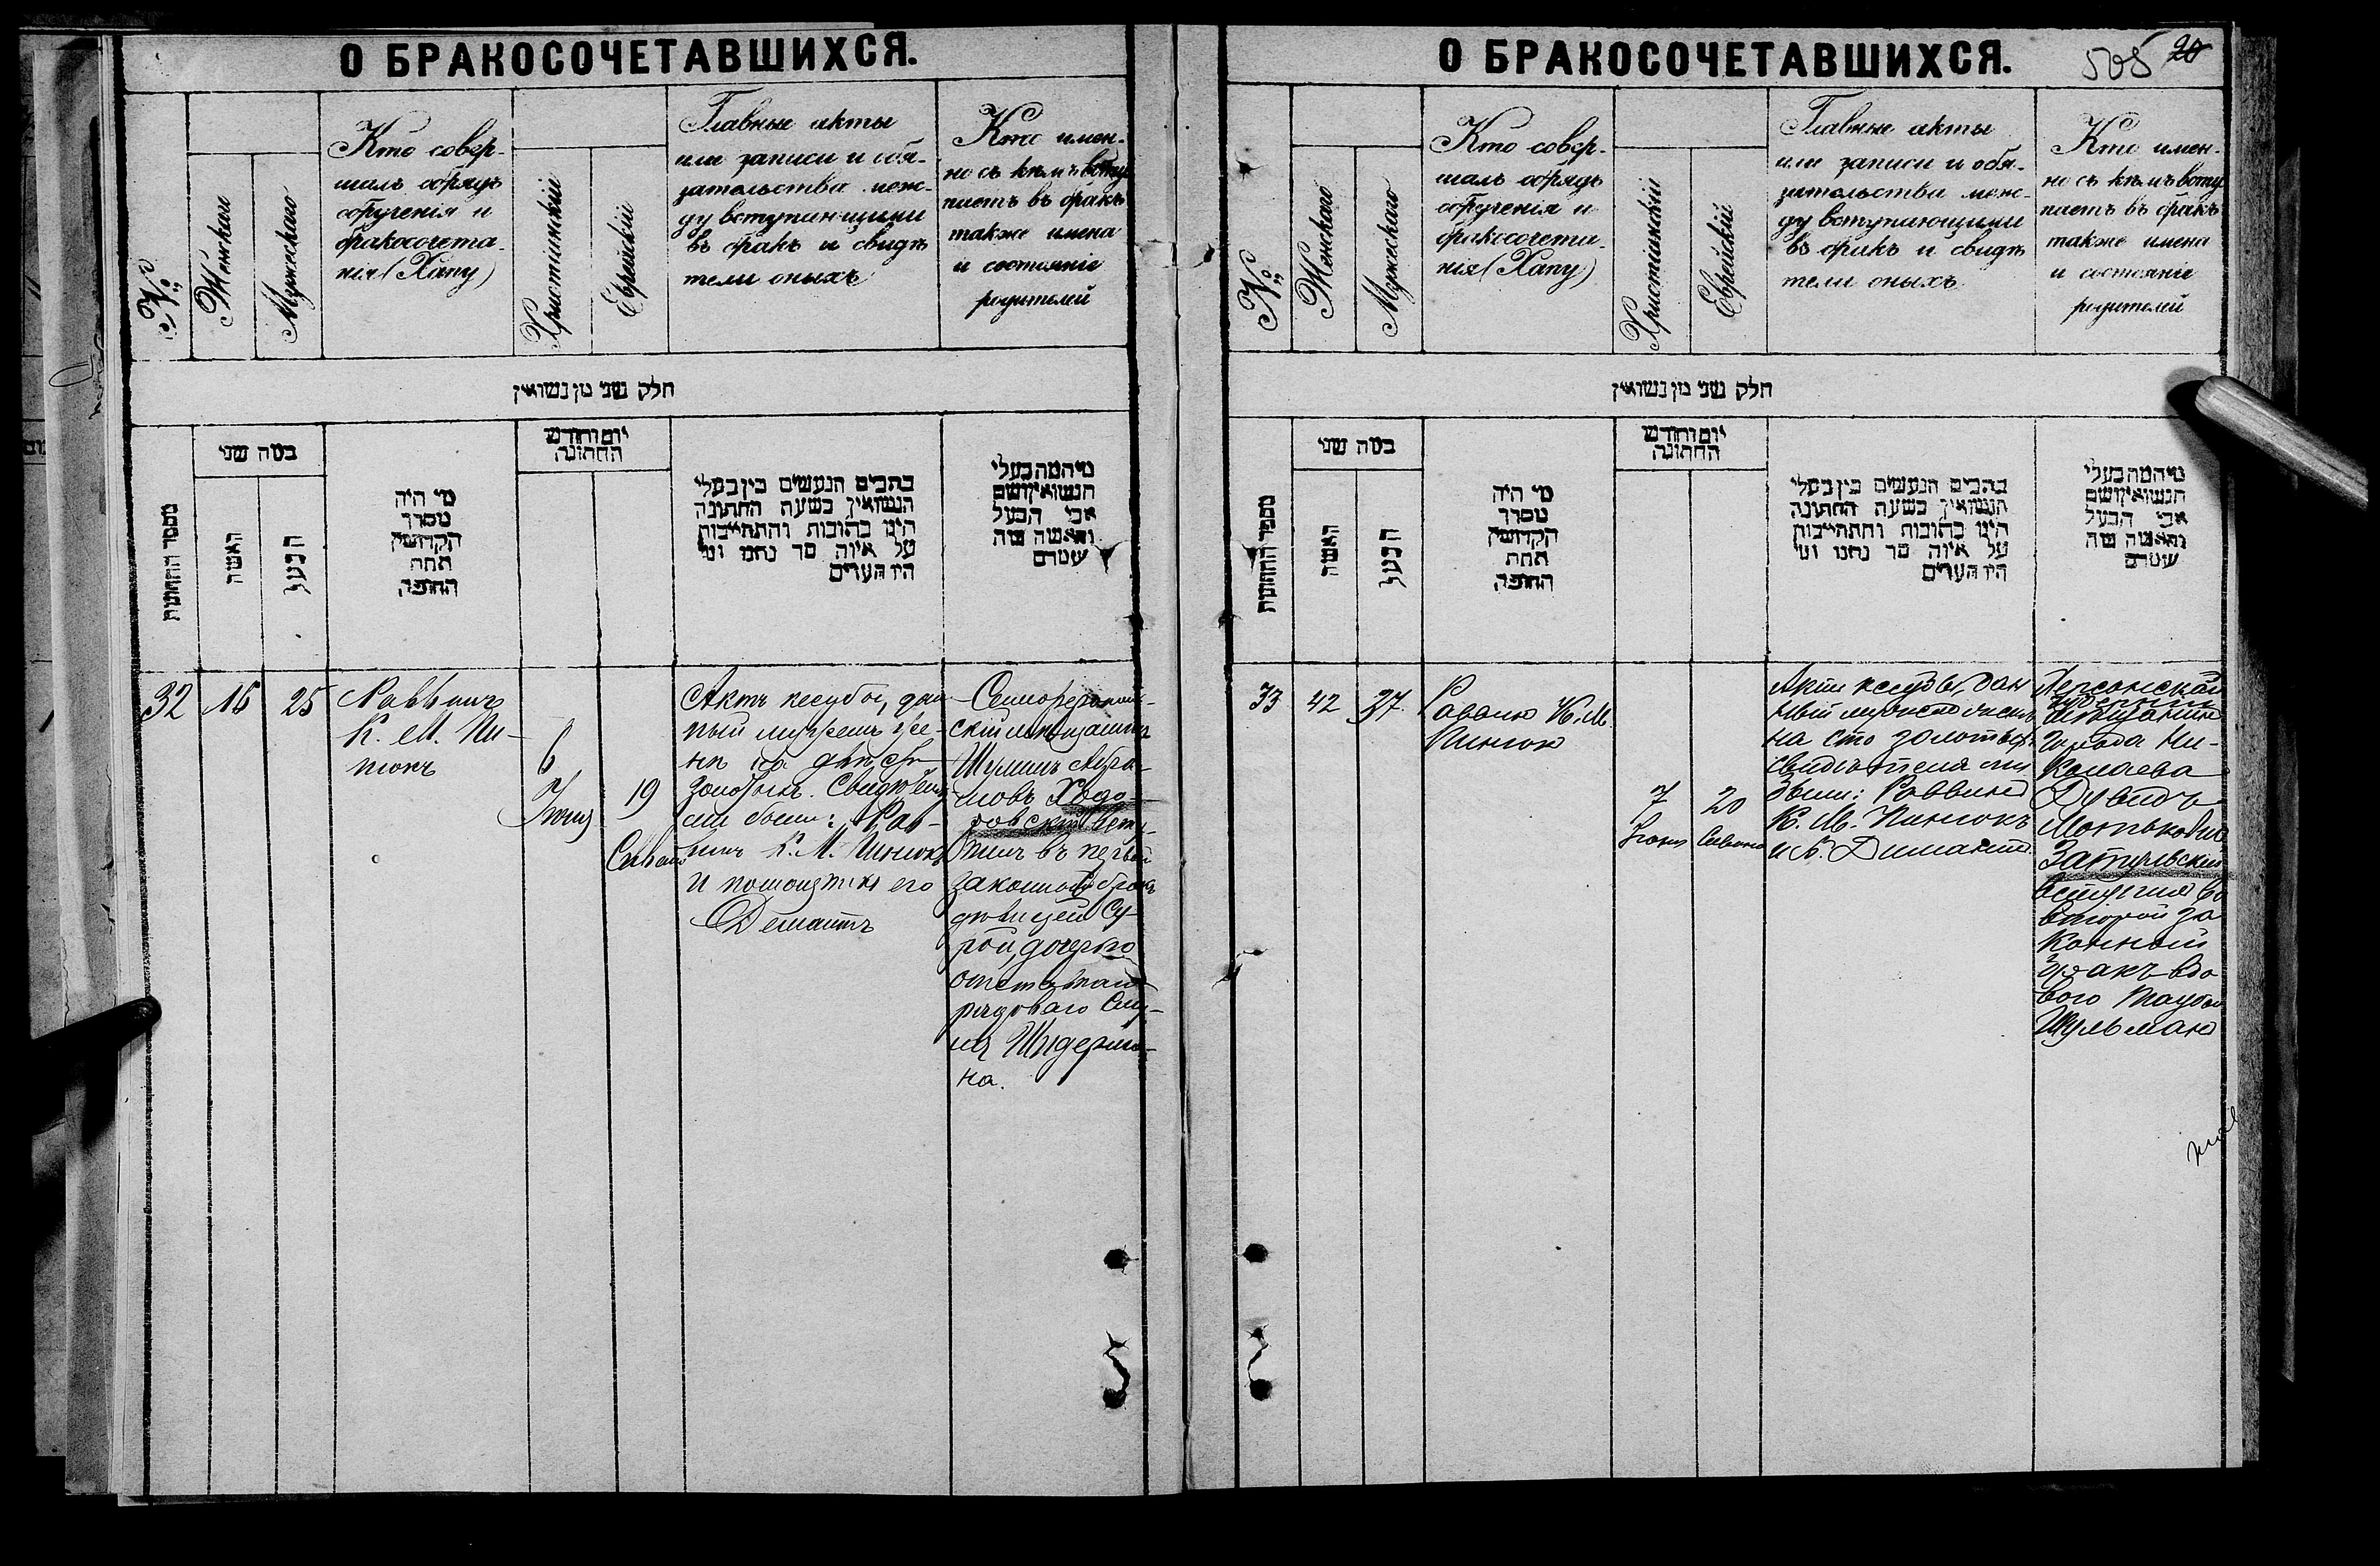 О БРАКОСОЧЕТАВШИХСЯ.
№
Женскаго
Мужескаго
Кто совер-
шалъ обрядъ
обрученія и
бракосочета-
нія (Хапу)
Христіанскій
Еврейскій
Главные акты
или записи и обя-
зательства меж-
ду вступающими
въ бракъ и свидѣ
тели оныхъ
Кто имен-
но съ кѣмъ всту
паетъ въ бракъ
также имена
и состояніе
родителей
חלק שני מן נשואין
מספר החתונות
במה שני
האשה
הבעל
מי היה
מסדר
הקדושין
תחת
החופה
יום וחודש
החתונה
כתבים הנעשים בין בעלי
הנשואין בשעת החתונה
היינו כתובות והתחייבות
על איזה סך נתנו ומי
היו העדים
מי המה בעלי
הנשואין ושם
אבי הבעל
והאשה מה
שמם
32
16
25
Раввинъ
К. М. Пи-
нюкъ
6
Іюня
19
Сивана
Актъ кесубы, дан-
ный мужемъ же-
нѣ на двѣсти
золотыхъ. Свидѣтеля-
ми были: Рав-
винъ К. М. Пинюкъ
и помощникъ его
Демантъ
Симферополь-
скій мѣщанинъ
Шулимъ Абра-
мовъ Ходо-
ровскій всту-
пилъ въ первый
законный бракъ
съ дѣвицей Су-
рой, дочерью
отставнаго
рядоваго
Шидерма-
на.
О БРАКОСОЧЕТАВШИХСЯ.
505 20
№
Женскаго
Мужескаго
Кто совер-
шалъ обрядъ
обрученія и
бракосочета-
нія (Хапу)
Христіанскій
Еврейскій
Главные акты
или записи и обя-
зательства меж-
ду вступающими
въ бракъ и свидѣ
тели оныхъ
Кто имен-
но съ кѣмъ всту
паетъ въ бракъ
также имена
и состояніе
родителей
חלק שני מן נשואין
מספר החתונות
במה שני
האשה
הבעל
מי היה
מסדר
הקדושין
תחת
החופה
יום וחודש
החתונה
כתבים הנעשים בין בעלי
הנשואין בשעת החתונה
היינו כתובות והתחייבות
על איזה סך נתנו ומי
היו העדים
מי המה בעלי
הנשואין ושם
אבי הבעל
והאשה מה
שמם
33
42
37
Раввинъ К. М.
Пинюк
7
Іюня
20
Сивана
Актъ кесубы, дан
ный мужемъ женѣ
на сто золотыхъ
свидѣтелями
были: Раввинъ
К. М. Пинюкъ
и Б. Димантъ
Херсонской
губерніи
мѣщанинъ
города Ни-
колаева
Дувидъ
Мотьковъ
вступилъ во
второй за
конный
бракъ вдо
вою Таубой
Шульман